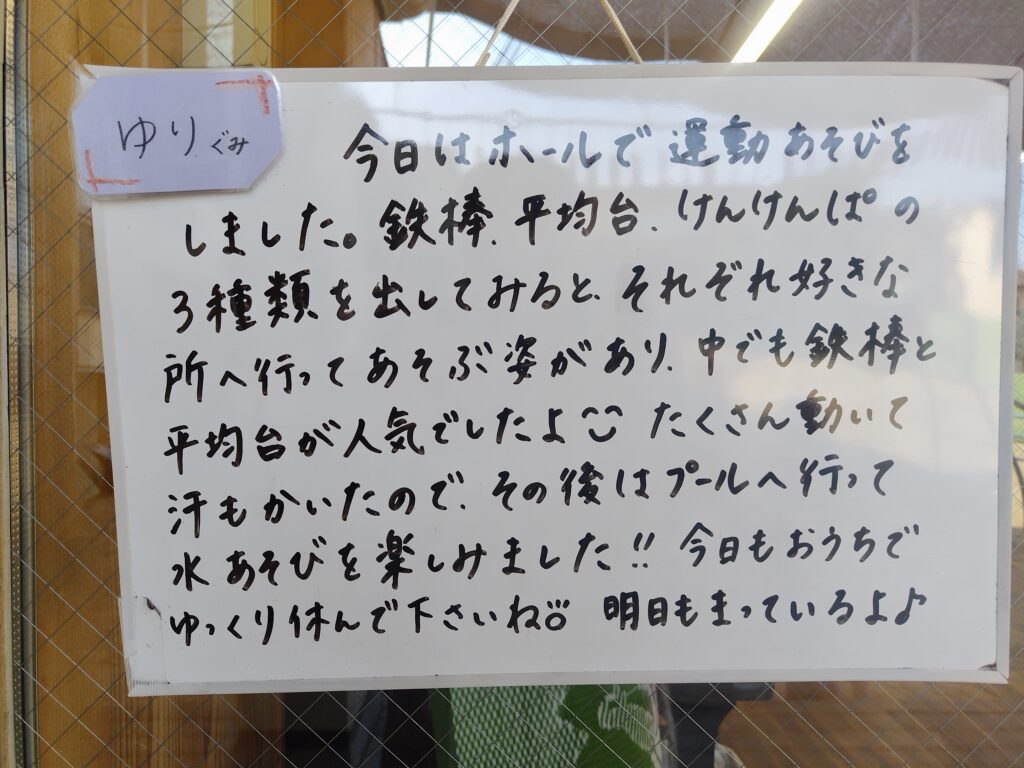 ゆりぐみ
今日はホールで運動あそびを
しました。鉄棒、平均台、けんけんぱの
3種類を出してみると、それぞれ好きな
所へ行ってあそぶ姿があり、中でも鉄棒と
平均台が人気でしたよ たくさん動いて
汗もかいたので、その後はプールへ行って
水あそびを楽しみました!! 今日もおうちで
ゆっくり休んで下さいね 明日もまっているよ♪